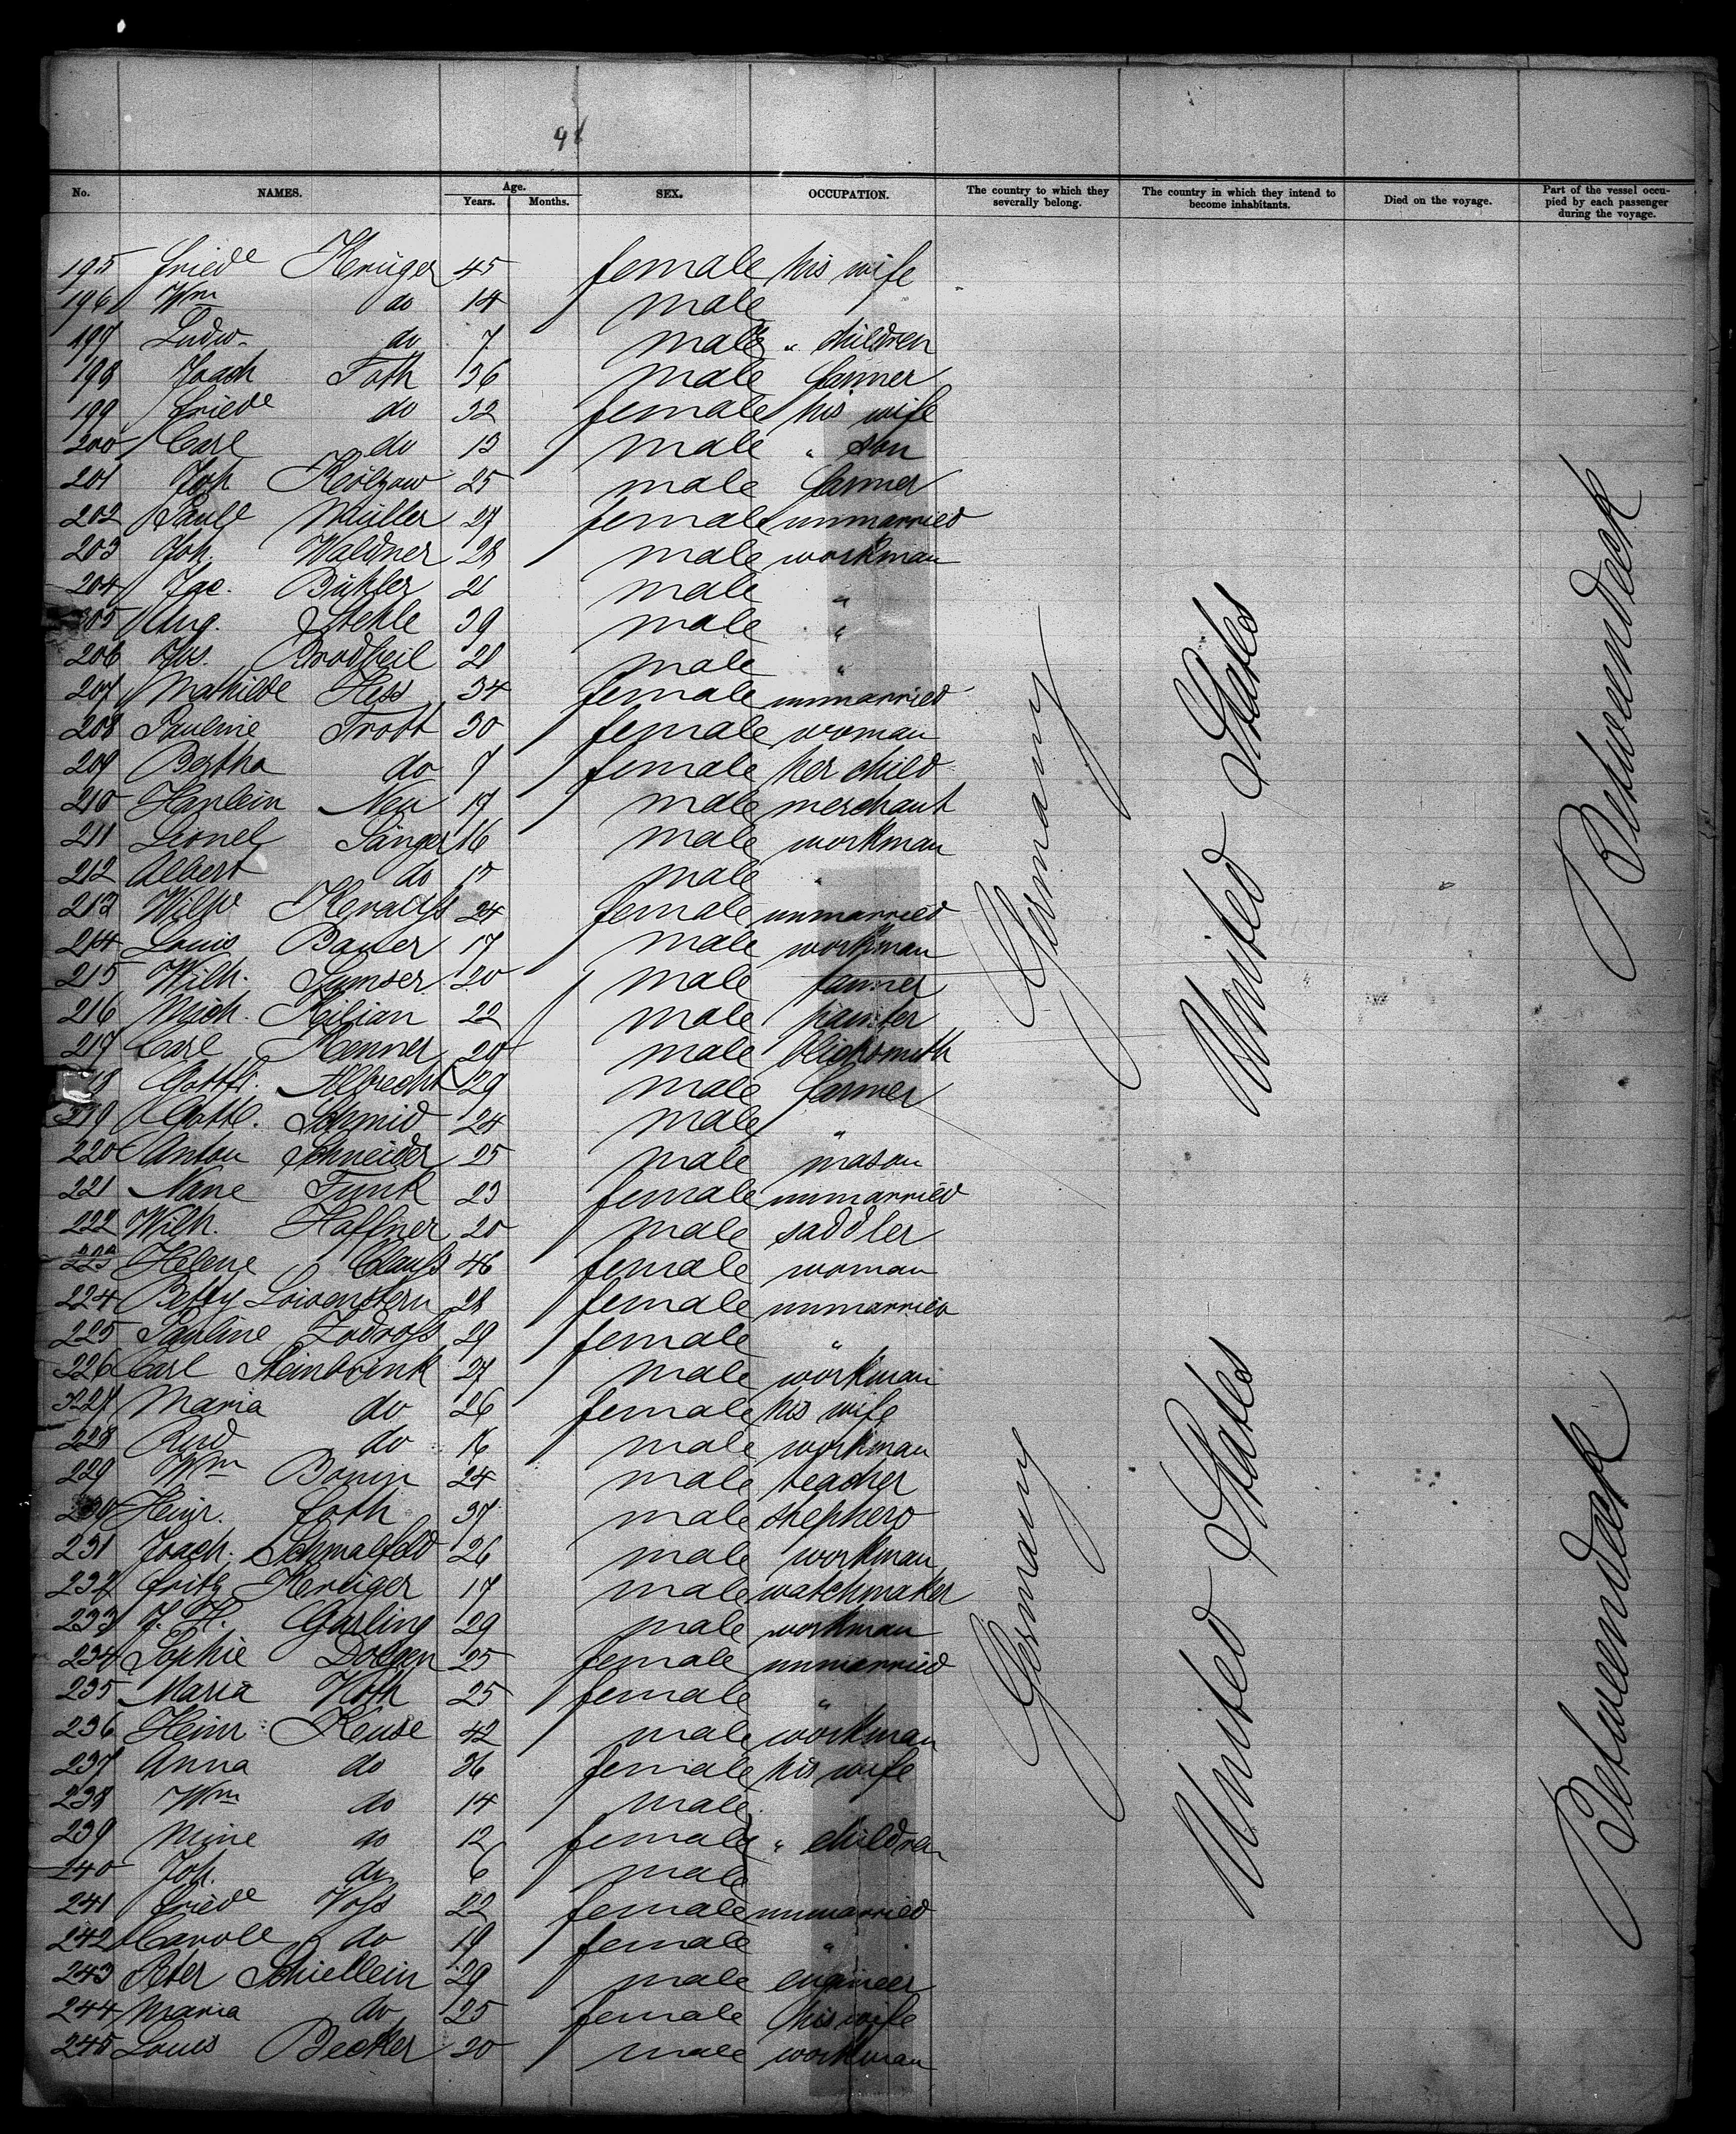 No. NAMES. Age. Years. Months. SEX. OCCUPATION. The country to which they severally belong. The country in which they intend to become inhabitants. Died on the voyage. Part of the vessel occupied by each passenger during the voyage.
195 Friede Krüger 45 female his wife
196 Wm do 14 male
197 Ludw. do 7 male " children
198 Joach Toth 36 male farmer
199 Friede do 32 female his wife
200 Carl do 13 male " son
201 Joh 25 male farmer
202 Paule Müller 27 female unmarried
203 Joh. Waldner 28 male workman
204 Jac. Bühler 21 male "
205 Aug. Stehle 39 male "
206 Jos. Brodbeil 21 male "
207 Mathilde Hess 34 female unmarried
208 Pauline Trott 30 female woman
209 Bertha do 7 female her child
210 Neu 17 male merchant
211 Leonel Sänger 16 male workman
212 Albert do male "
213 Wilhe Krauss 24 female unmarried
214 Louis Bauer 17 male workman
215 Wilh. Sumser 20 male farmer
216 Mich. Kilian 22 male painter
217 Carl Renner 20 male blacksmith
218 Gottfr. Albrecht 29 male farmer
219 Gottl. Schmid 24 male "
220 Anton Schneider 25 male mason
221 Nane Funk 23 female unmarried
222 Wilh. Haffner 20 male saddler
223 Helene Clauss 46 female woman
224 Betty Löwenstern 28 female unmarried
225 Pauline 29 female "
226 Carl Steinbrink 27 male workman
227 Maria do 26 female his wife
228 Rud do 16 male workman
229 Wm Bonin 24 male teacher
230 Heinr. Foth 37 male shepherd
231 Joach. Schmalfeld 26 male workman
232 Fritz Krüger 17 male watchmaker
233 J. H. Garling 29 male workman
234 Sophie Dolgen 25 female unmarried
235 Maria Voth 25 female "
236 Heinr. Keuse 42 male workman
237 Anna do 36 female his wife
238 Wm do 14 male
239 Mine do 12 female " children
240 Joh. do 6 male
241 Friede Voss 22 female unmarried
242 Carole do 19 female "
243 Peter Schiellein 29 male engineer
244 Maria do 25 female his wife
245 Louis Becker 20 male workman
Germany
United States
Betweendeck
Germany
United States
Betweendeck